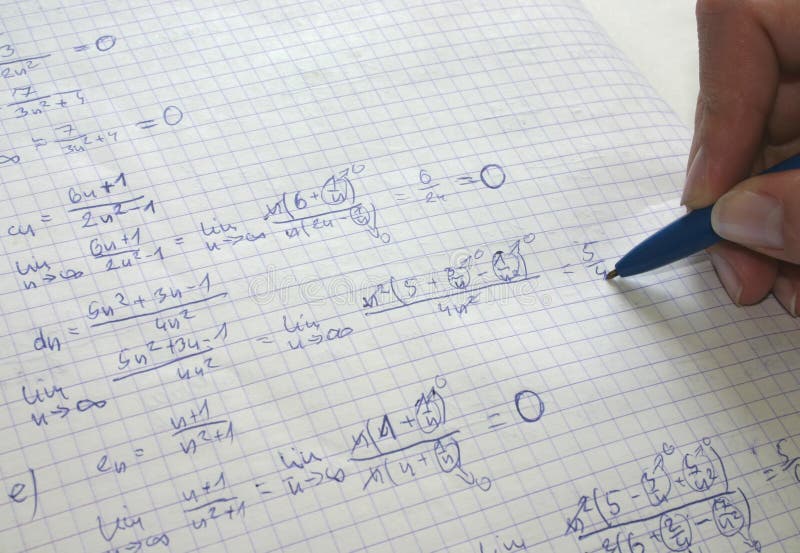 3/2n² = 0
7/3n²+4
∞ = 7/3n²+4 = 0
cn = 6n+1/2n²-1
lim n→∞ 6n+1/2n²-1 = lim n→∞ n(6+1/n)→0/n(2n-1/n)→0 = 6/2n = 0
dn = 5n²+3n-1/4n²
lim n→∞ 5n²+3n-1/4n² = lim n→∞ n²(5+3/n-1/n²)→0/4n² = 5/4
e) en = n+1/n²+1
lim n→∞ n+1/n²+1 = lim n→∞ n(1+1/n)→0/n(n+1/n)→0 = 0
lim n²(5-3/n+5/n²)→0
dreamstime